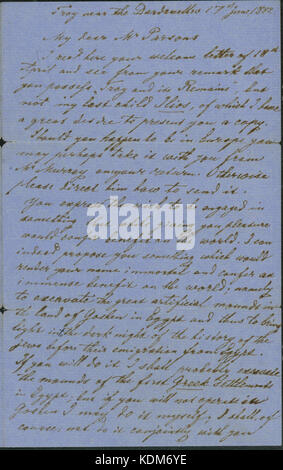 Troy near the Dardanelles 17th June 1882
My dear Mr Parsons
I read here your welcome letter of 18th
April and see from your remark that
you possess Troy and its Remains, but
not my last child Ilios, of which I have
a great desire to present you a copy.
Should you happen to be in Europe you
may perhaps take it with you from
Mr Murray on your return. Otherwise
please direct him how to send it.
You express the wish to be engaged in
something that while giving you pleasure
would confer benefit on the world. I can
indeed propose you something which would
render your name immortal and confer an
immense benefit on the world; namely
to excavate the great artificial mounds in
the land of Goshen in Egypt and thus to bring
light in the dark night of the history of the
Jews before their emigration from Egypt.
If you will do it I shall probably excavate
the mounds of the first Greek Settlements
in Egypt; but if you will not operate in
Goshen I may do it myself; I shall of
course do it conjointly with you
alamy
Image ID: PKDM6YE
www.alamy.com